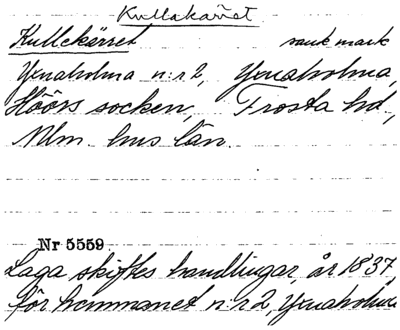 Kullakärret
Kullekärret sank mark
Yxnaholma n:r 2, Yxnaholma,
Höörs socken, Frosta hd,
Mlm. hus län.
Nr 5559
Laga skiftes handlingar, år 1837,
för hemmanet n:r 2, Yxnaholma